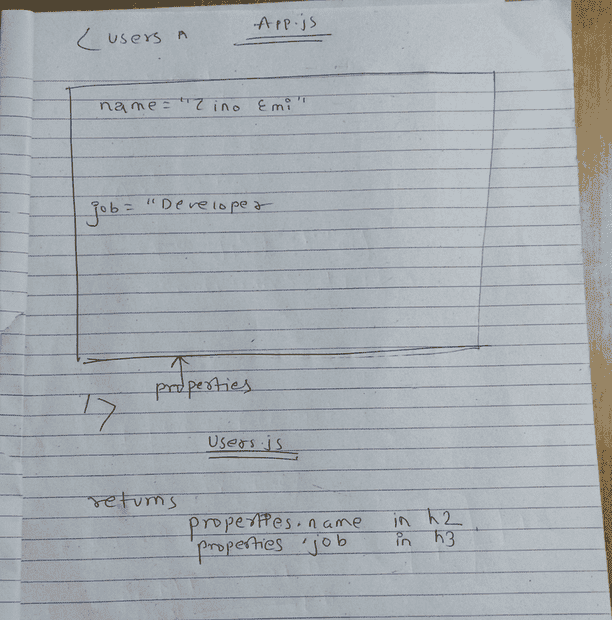 App.js
< users
name = "Zino Emi"
job = "Developer
properties
/>
Users.js
returns
properties.name in h2
properties.job in h3